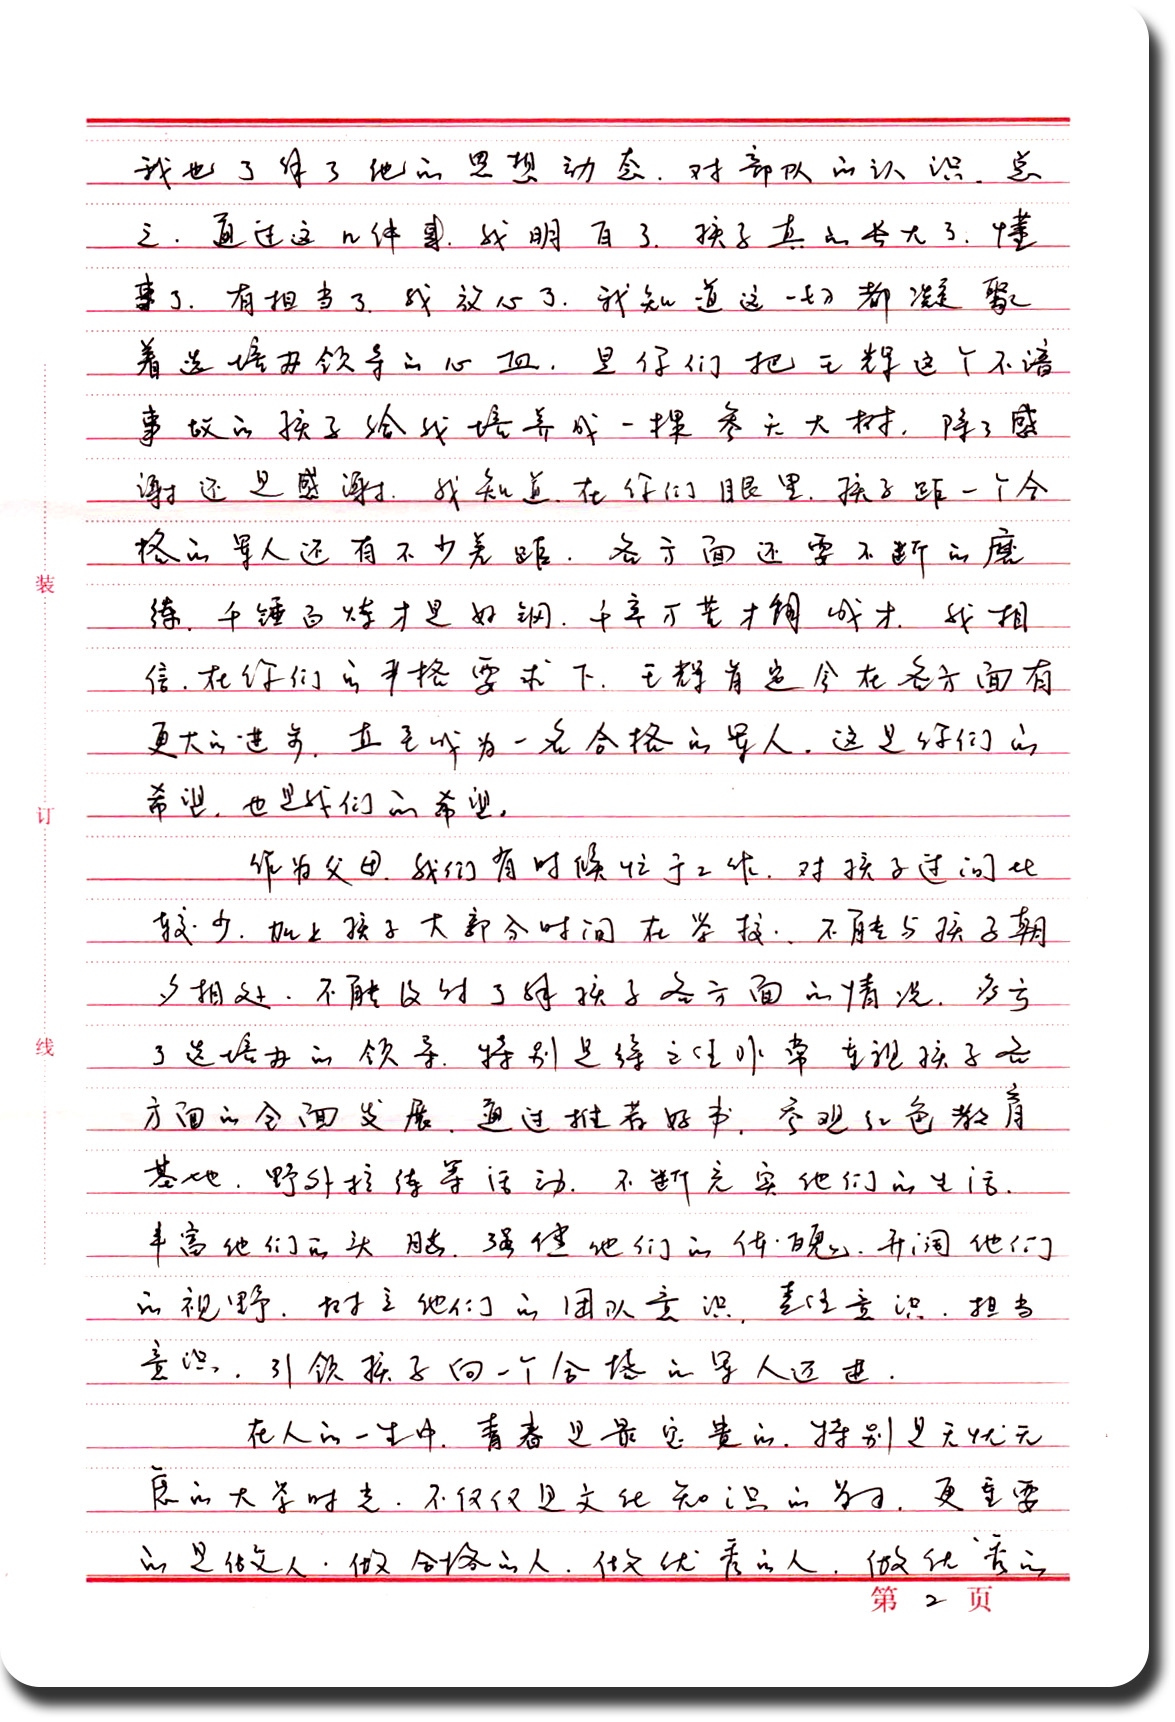 我也了解了他的思想动态.对部队的认识.总
之.通过这几件事.我明白了.孩子真的长大了.懂
事了.有担当了.我放心了.我知道这一切都凝聚
着选培办领导的心血.是你们把王辉这个不谙
事故的孩子给我培养成一棵参天大树.除了感
谢还是感谢.我知道.在你们眼里.孩子距一个合
格的军人还有不少差距.各方面还要不断的磨
练.千锤百炼才是好钢.千辛万苦才能成才.我相
信.在你们的严格要求下.王辉肯定会在各方面有
更大的进步.直至成为一名合格的军人.这是你们的
希望.也是我们的希望。
作为父母.我们有时候忙于工作.对孩子过问比
较少.加上孩子大部分时间在学校.不能与孩子朝
夕相处.不能及时了解孩子各方面的情况.多亏
了选培办的领导.特别是徐主任非常重视孩子各
方面的全面发展.通过推荐好书.参观红色教育
基地.野外拉练等活动.不断充实他们的生活.
丰富他们的头脑.强健他们的体魄.开阔他们
的视野.树立他们的团队意识.责任意识.担当
意识.引领孩子向一个合格的军人迈进.
在人的一生中.青春是最宝贵的.特别是无忧无
虑的大学时光.不仅仅是文化知识的学习.更重要
的是做人.做合格的人.做优秀的人.做优秀的
第2页
装
订
线